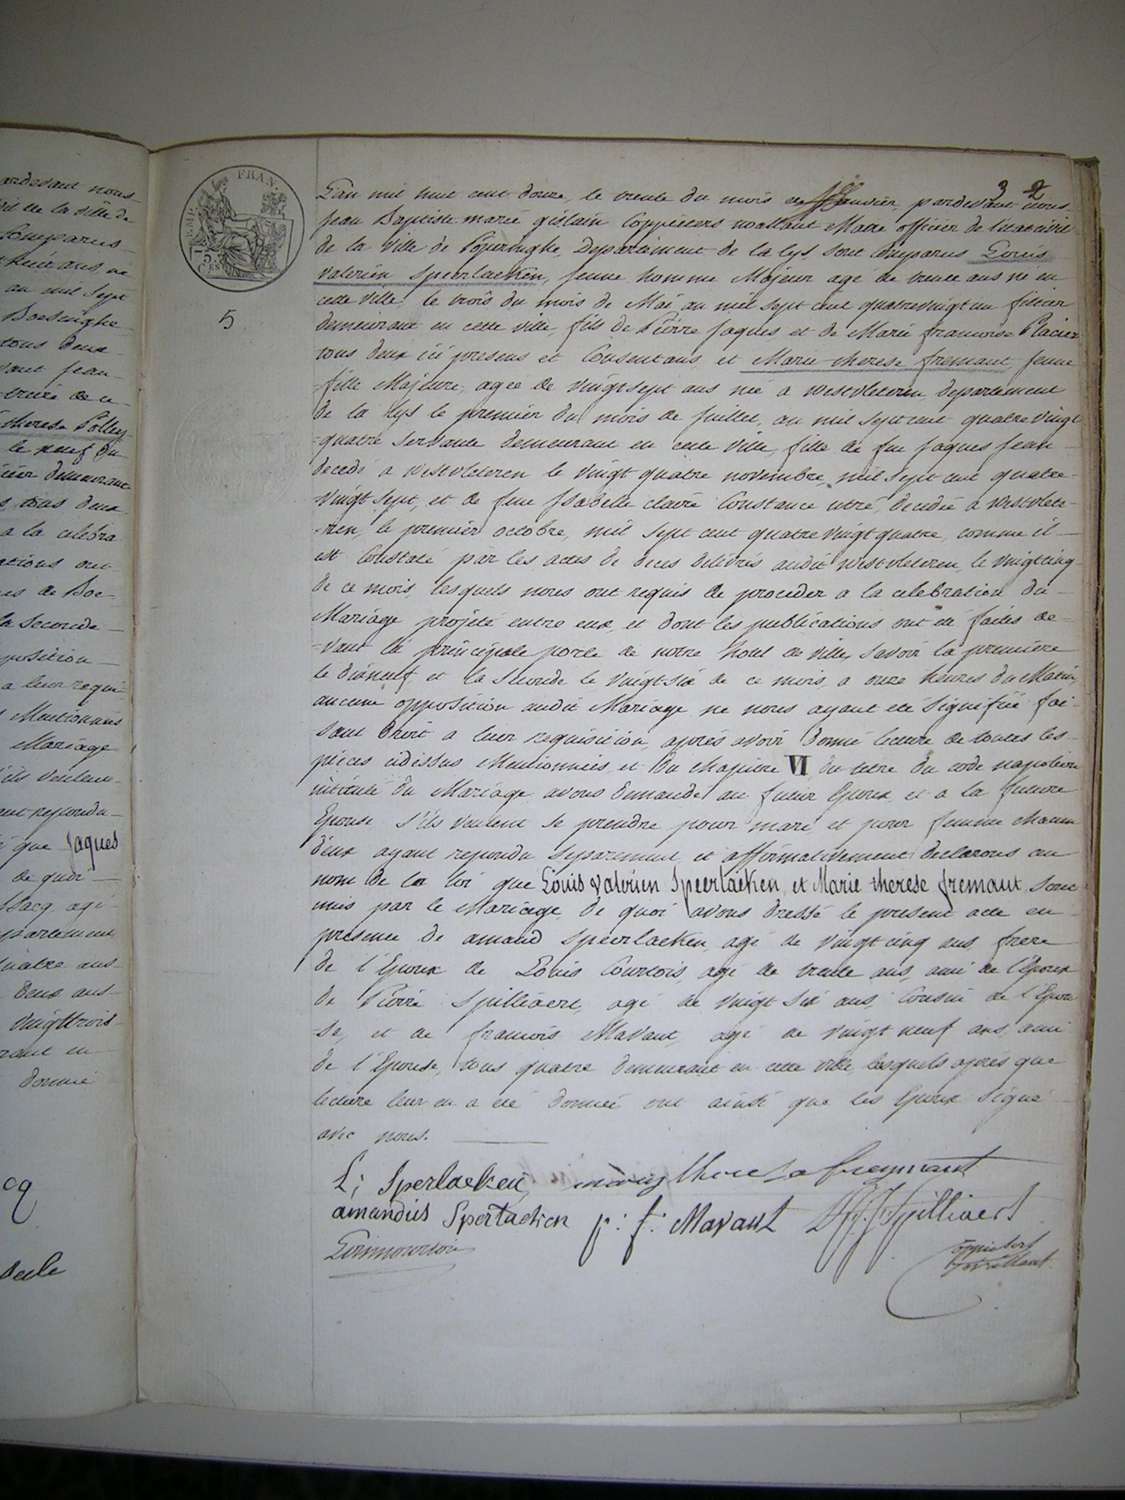 3 2
L'an mil huit cent douze, le trente du mois de Janvier, pardevant nous
Jean Baptiste marie gislain Coppieters Maire officier de l'état civil
de la Ville de Poperinghe, Departement de la lys, sont Comparus Louis
Valerien Speerlaeken, jeune homme Majeur agé de trente ans né en
cette ville, le trois du mois de Mai an mil sept cent quatrevingt un
demeurant en cette ville, fils de Pierre Jaques et de Marie francoise
tous deux ici presens et Consentans, et Marie therese fremaut jeune
fille Majeure, agée de vingtsept ans née a westvleteren departement
de la lys le premier du mois de Juillet, an mil sept cent quatre vingt
quatre servante demeurant en cette ville, fille de feu Jaques Jean
decedé a westvleteren le vingt quatre novembre, mil sept cent quatre
vingt sept, et de feue Isabelle claire Constance decedée a westvlete-
-ren, le premier octobre, mil sept cent quatre vingt quatre, comme il
est Constaté par les actes de deces délivrés audit westvleteren, le vingtcinq
de ce mois, lesquels nous ont requis de proceder a la celebration du
Mariage projeté entre eux, et dont les publications ont été faites de-
-vant la principale porte de notre hotel de ville, Savoir la premiere
le dixneuf et la seconde le vingt six de ce mois, a onze heures du Matin,
aucune opposition audit Mariage ne nous ayant été signifiée fai-
sant droit a leur requisition, après avoir donné lecture de toutes les
pieces cidessus Mentionnées, et du chapitre VI du titre du code napoleon
intitulé du Mariage avons demandé au futur Epoux et a la future
Epouse s'ils veulent se prendre pour mari et pour femme chacun
d'eux ayant repondu separement et affirmativement declarons au
nom de la loi que Louis Valerien Speerlaeken et Marie therese fremaut sont
unis par le Mariage, de quoi avons dressé le present acte en
presence de amand Speerlaeken, agé de vingtcinq ans, frere
de l'Epoux de Louis Courtois, agé de trente ans, ami de l'Epoux
de Pierre Spilliaert, agé de vingt six ans, Cousin de l'Epou
se, et de francois Mavaut, agé de vingt neuf ans, ami
de l'Epouse, tous quatre demeurant en cette ville, lesquels après que
lecture leur en a été donnée ont ainsi que les Epoux signé
avec nous.
L; Sperlaeken, marie therese fremaut
amandus Sperlaeken p: f: Mavaut Spilliaert
5
FRAN.
75
Cen
ardevant nous
de la ville de
Comparus
ans né
an mil sept
Boesinghe
tous deux
Jean
therese
le neuf du
demeurant
tous deux
a la celebra
ont
la seconde
position
a leur requi
Mentionnés
Mariage
repondu
que Jaques
de quoi
agé
partement
quatre ans
deux ans
vingttrois
rant en
donnée
cq